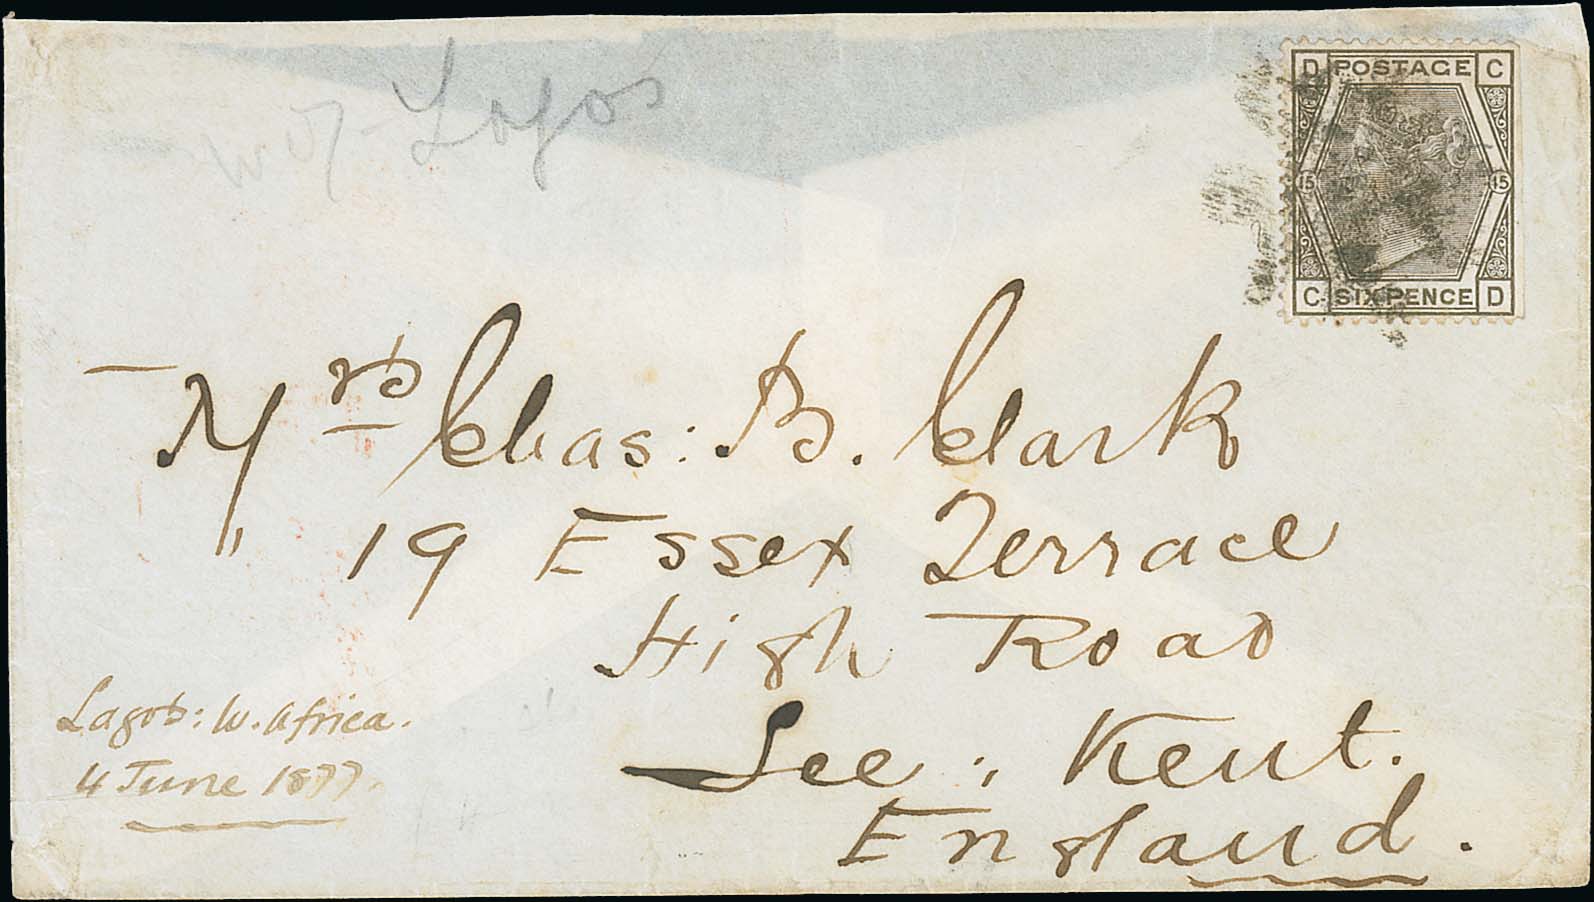 W of Lagos
D POSTAGE C
15 15
C SIX PENCE D
Mrs Chas: B. Clark
" 19 Essex Terrace
High Road
Lee; Kent.
England.
Lagos: W. Africa.
4 June 1877.